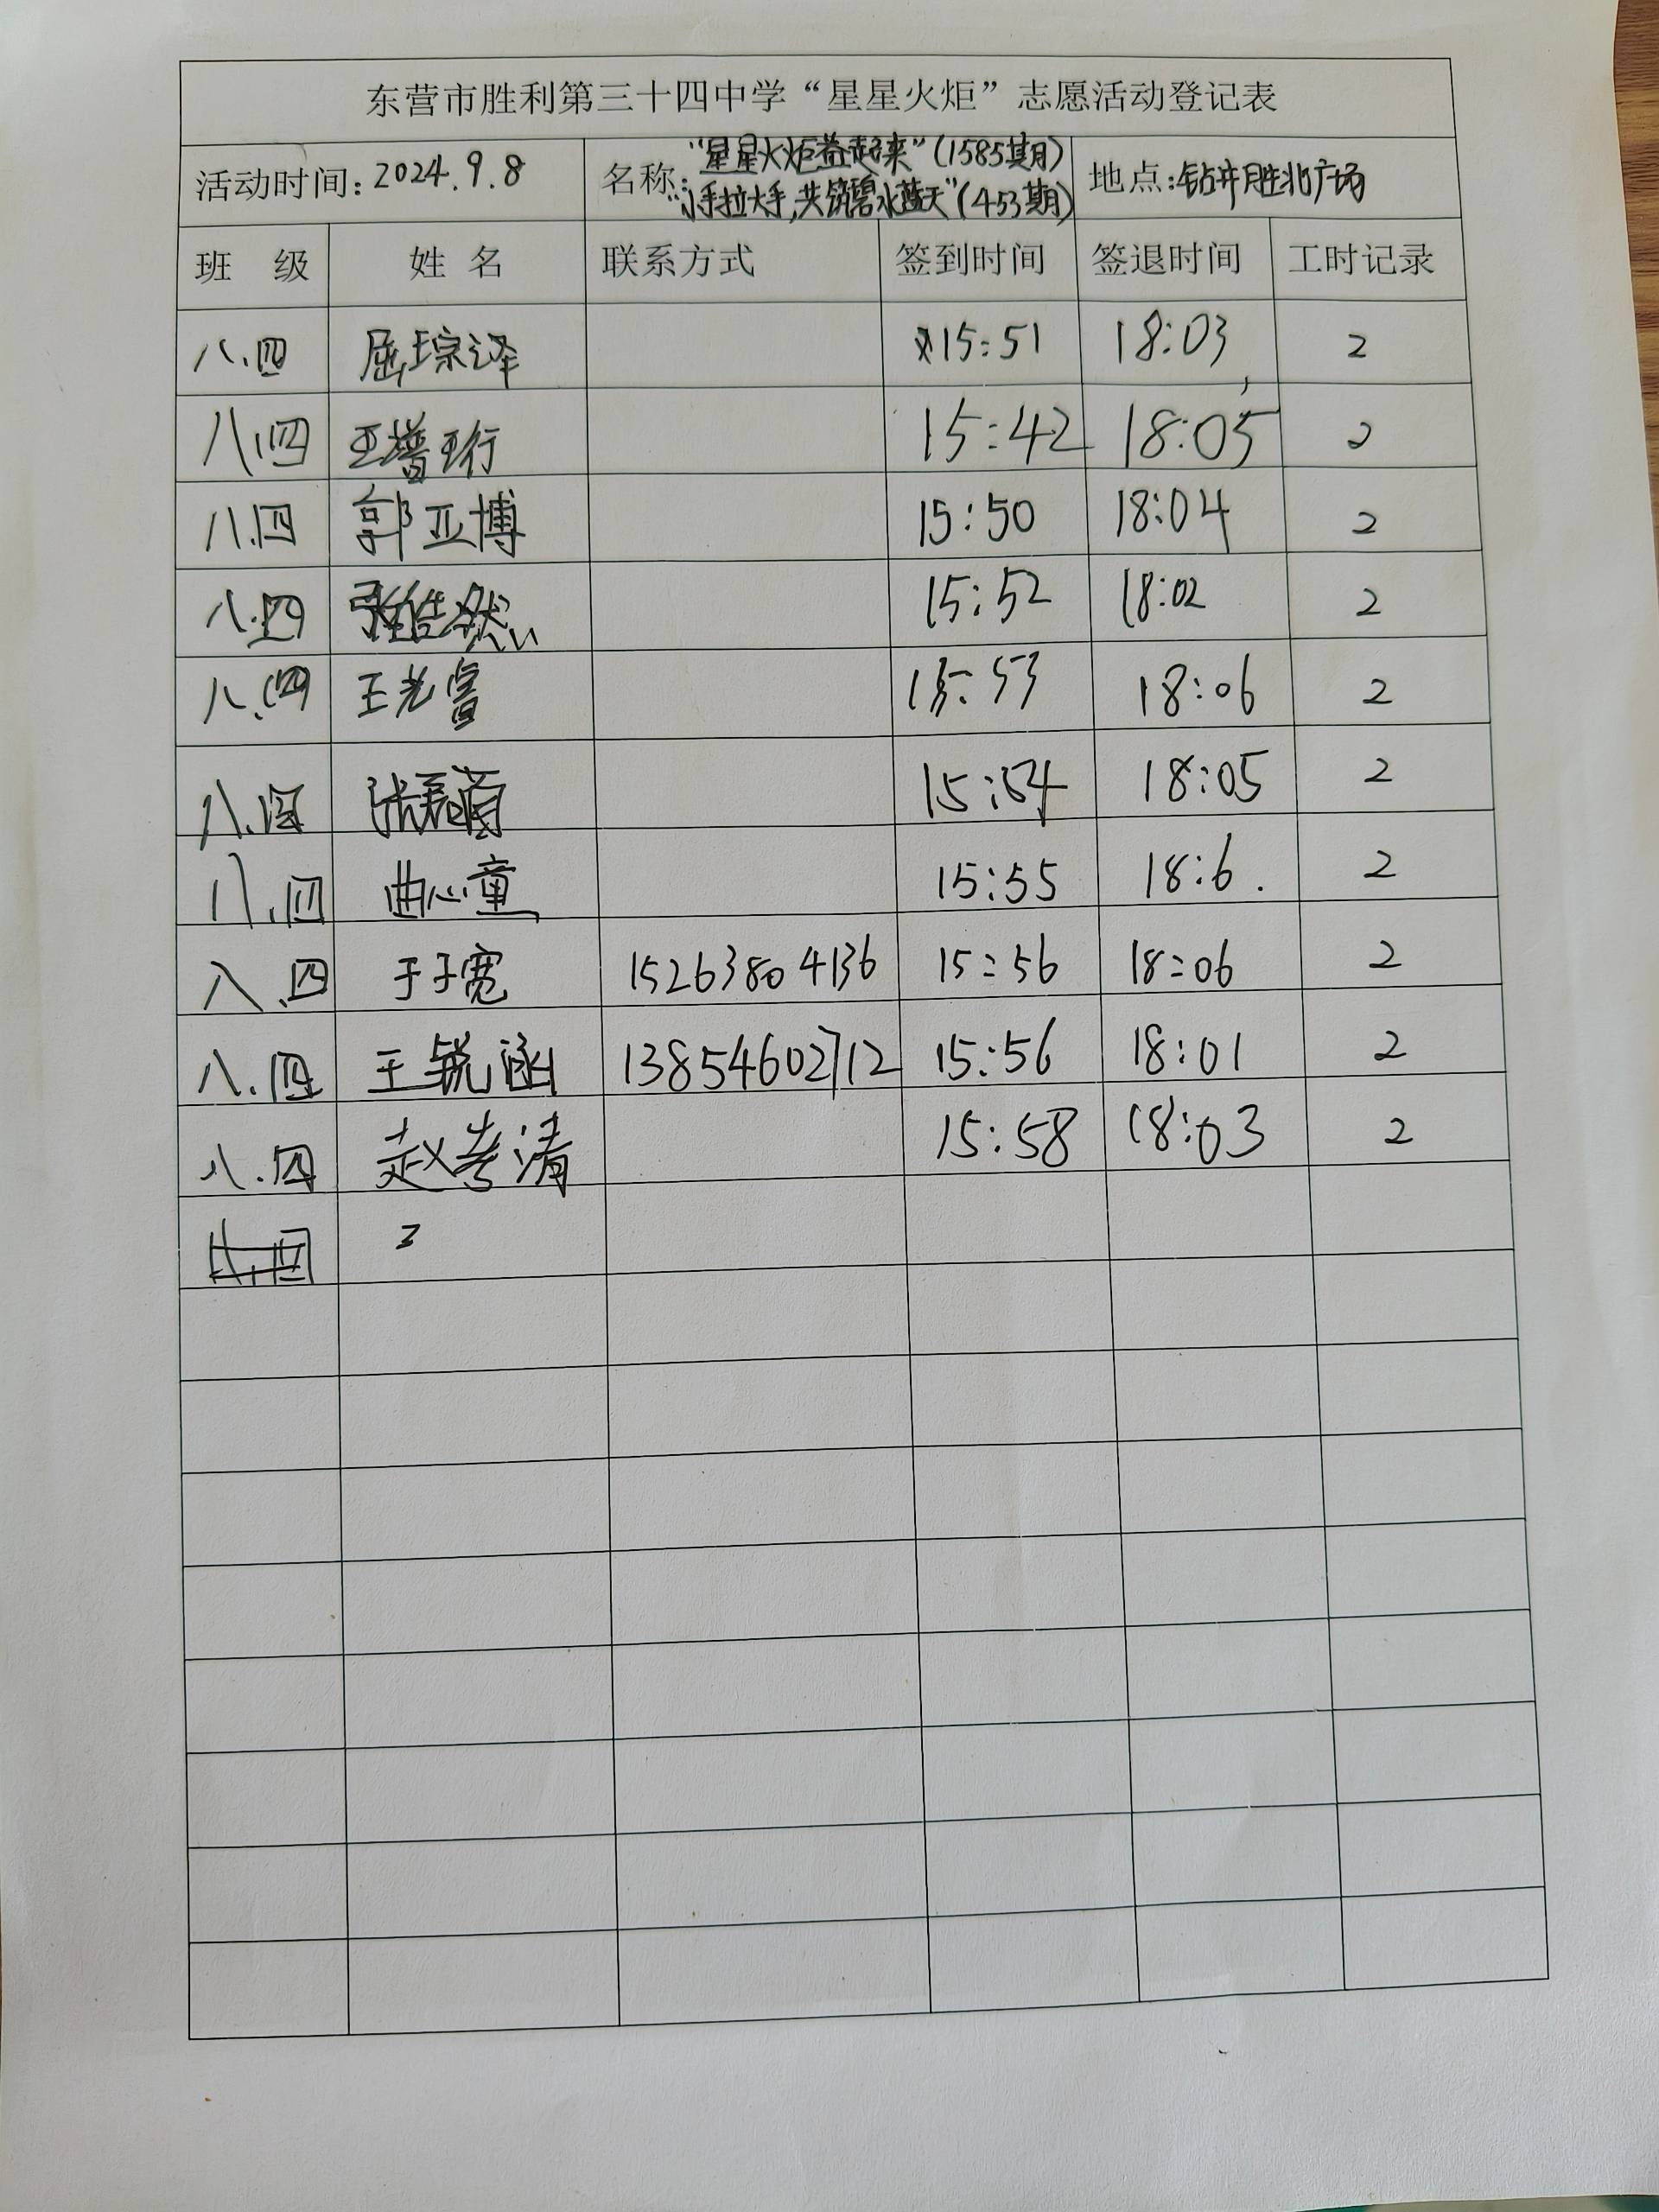 东营市胜利第三十四中学“星星火炬”志愿活动登记表
活动时间:2024.9.8 名称:“星星火炬益起来”(1585期) 地点:钻井胜北广场
“小手拉大手,共筑碧水蓝天”(453期)
班 级 姓 名 联系方式 签到时间 签退时间 工时记录
八.四 屈琮泽 15:51 18:03 2
八.四 王璔珩 15:42 18:05 2
八.四 郭亚博 15:50 18:04 2
八.四 张皓然 15:52 18:02 2
八.四 王光富 15:53 18:06 2
八.四 张 15:54 18:05 2
八.四 曲心童 15:55 18:6.  2
八.四 于子宽 15263804136 15:56 18:06 2
八.四 王锐涵 13854602712 15:56 18:01 2
八.四 赵孝清 15:58 18:03 2
八.四